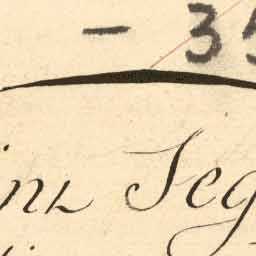 - 35
inz Seg